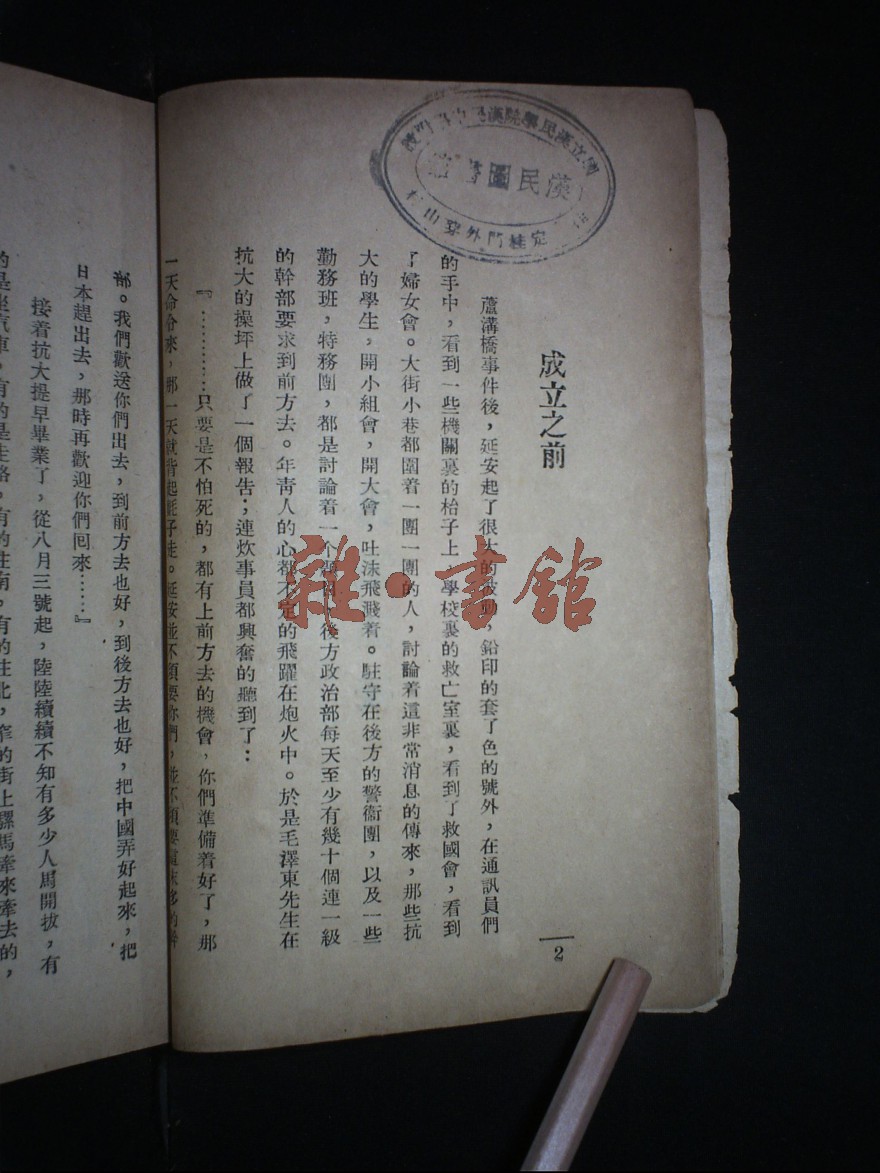 成立之前
蘆溝橋事件後，延安起了很大的波動，鉛印的套了色的號外，在通訊員們
的手中，看到一些機關裏的枱子上，學校裏的救亡室裏，看到了救國會，看到
了婦女會。大街小巷都圍着一團一團的人，討論着這非常消息的傳來，那些抗
大的學生，開小組會，開大會，吐沫飛飛着。駐守在後方的警衞團，以及一些
勤務班，特務團，都是討論着一个 後方政治部每天至少有幾十個連一級
的幹部要求到前方去。年靑人的心都不定的飛躍在炮火中。於是毛澤東先生在
抗大的操坪上做了一個報告；連炊事員都興奮的聽到了：
『…………只要是不怕死的，都有上前方去的機會，你們準備着好了，那
一天命令來，那一天就背起毯子走。延安並不須要你們，並不須要這末多的幹
部。我們歡送你們出去，到前方去也好，到後方去也好，把中國弄好起來，把
日本趕出去，那時再歡迎你們回來……』
接着抗大提早畢業了，從八月三號起，陸陸續續不知有多少人馬開拔，有
的是坐汽車，有的是走路，有的往南，有的往北，窄的街上騾馬牽來牽去的，
2
國立漢民學院漢民
漢民圖書館
定桂門外穿山村
雜·書館